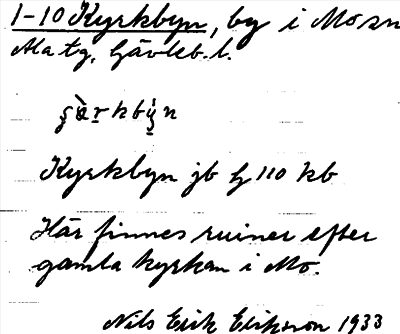 1-10 Kyrkbyn, by i Mo sn
Ala tg, Gävleb. l.
Kyrkbyn jb h 110 kb
Här finnes ruiner efter
gamla kyrkan i Mo.
Nils Erik Eliksson 1933